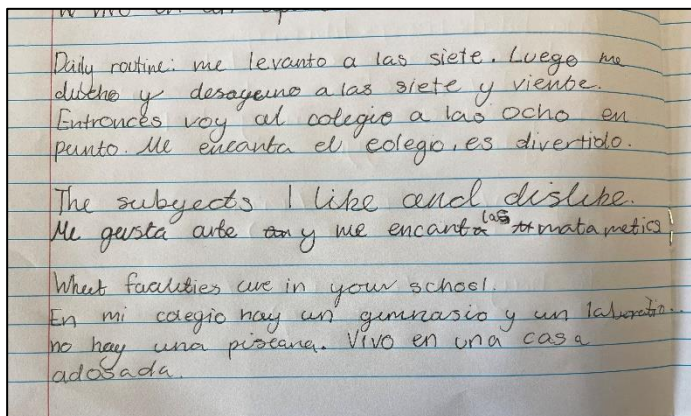 Daily routine: me levanto a las siete. Luego me
ducho y desayeuno a las siete y viente.
Entronces voy al colegio a las ocho en
punto. Me encanta el colegio, es divertido.
The subyects I like and dislike.
Me gusta arte y me encanta las matametics
What facilities are in your school.
En mi colegio hay un gimnasio y un
no hay una piscana. Vivo en una casa
adosada.